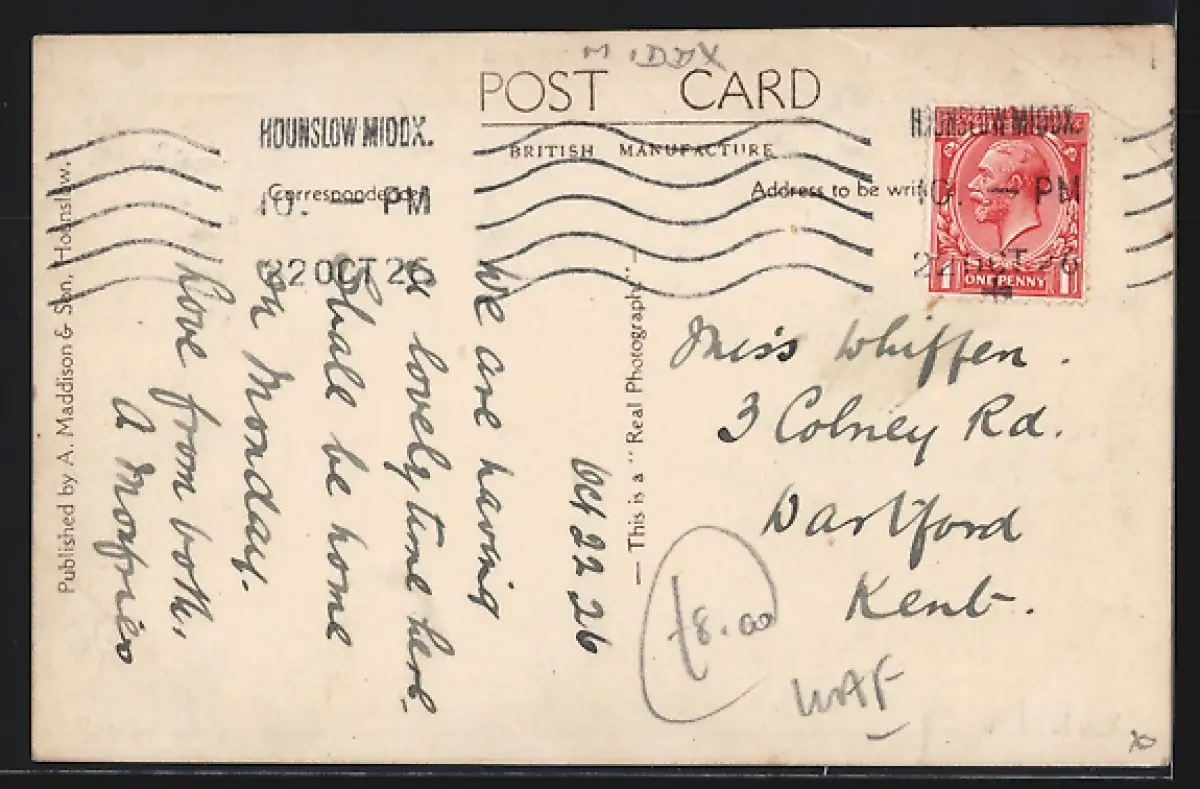 MIDDX
POST CARD
BRITISH MANUFACTURE
HOUNSLOW MIDDX.
10. — PM
22 OCT 26
HOUNSLOW MIDDX.
10. — PM
22 OCT 26
ONE PENNY
1 1
Correspondence
Address to be
Published by A. Maddison & Son, Hounslow.
— This is a "Real Photograph" —
Oct 22 26
We are having
a lovely time here.
Shall be home
on Monday.
Love from both.
A
Miss Whiffen.
3 Colney Rd.
Dartford
Kent.
£8.00
WAF